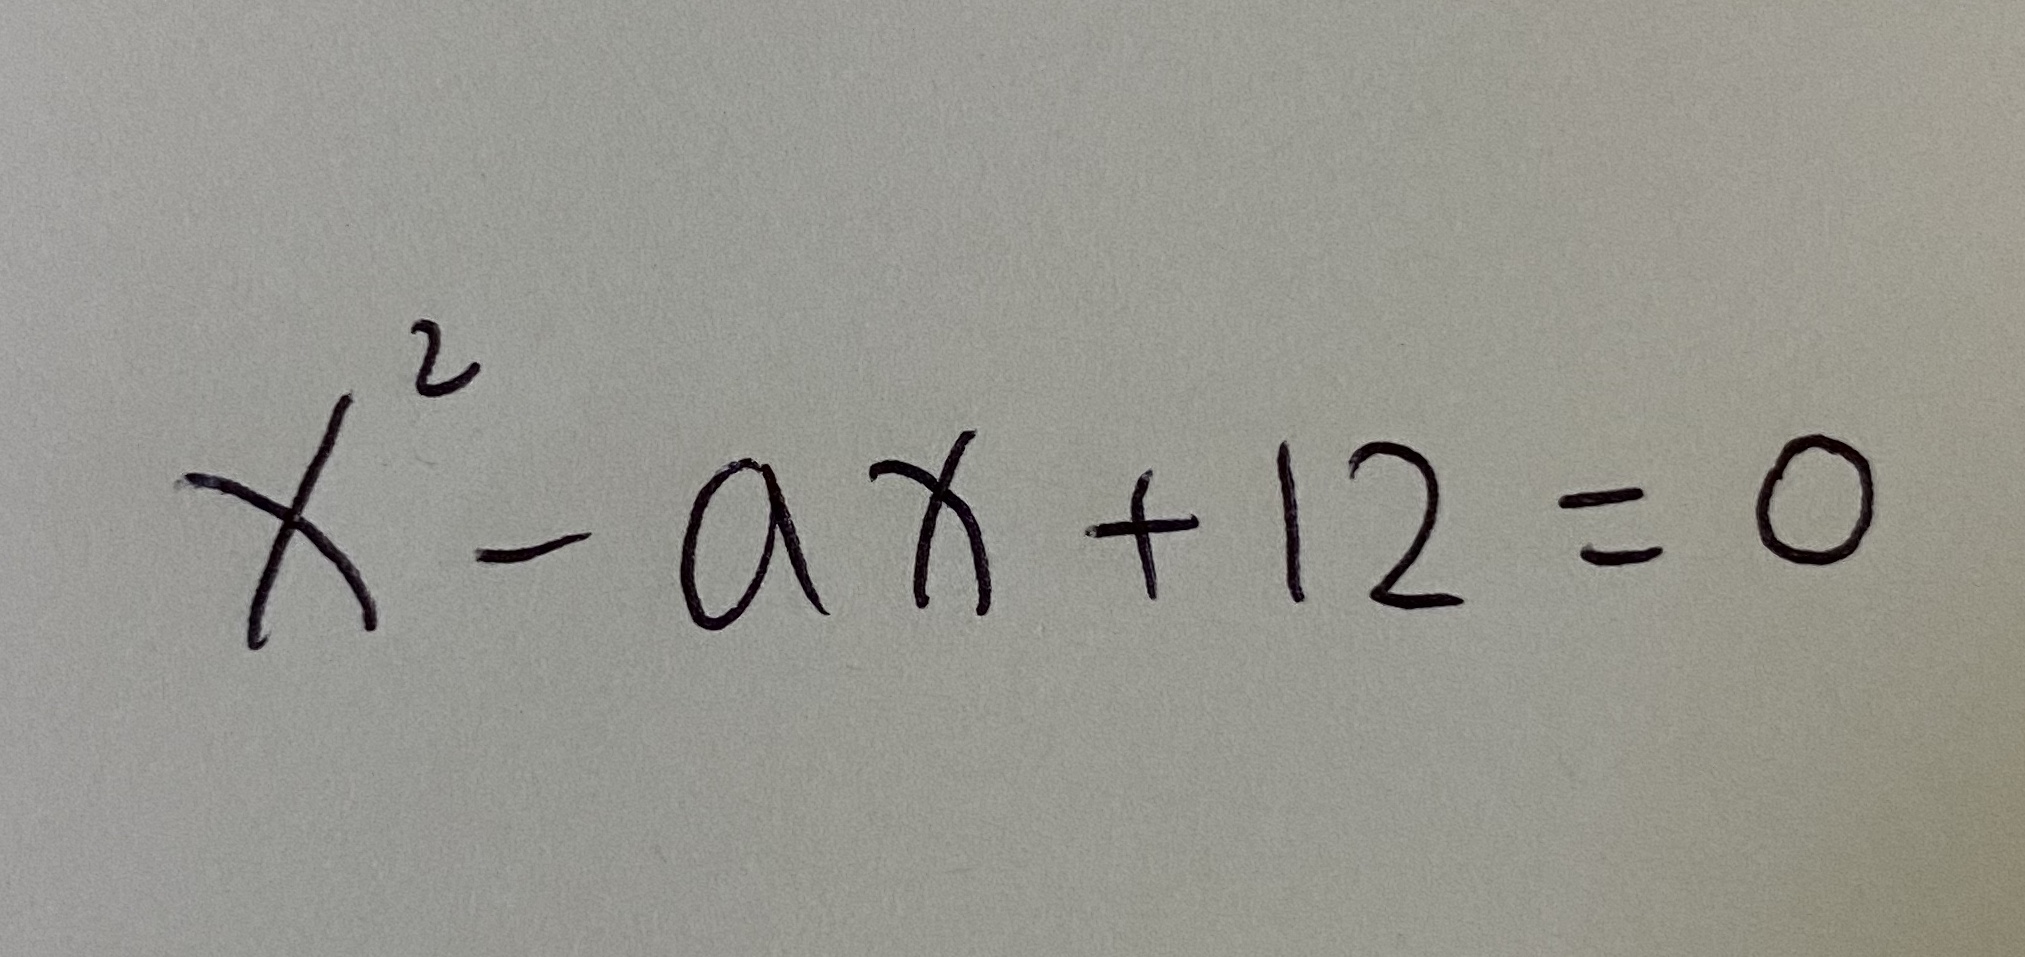 x² - ax + 12 = 0